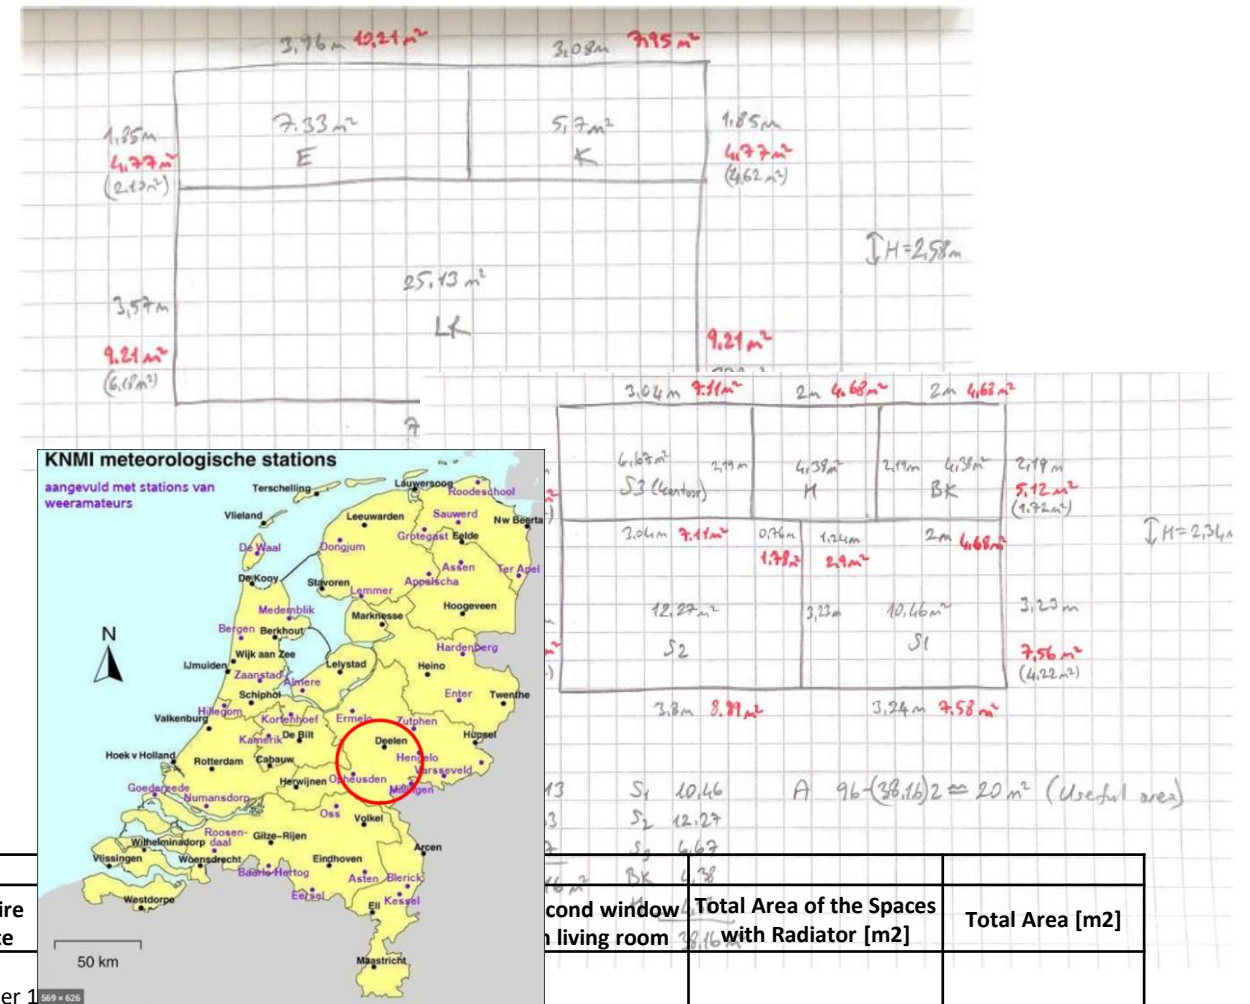 3,96m 10,21m²
3,08m 7,95m²
1,85m
4,77m²
7.33m²
E
5,7m²
K
1,85m
4,77m²
(4,62m²)
H=2,58m
3,57m
9.21m²
25,13m²
LK
9,21m²
3,04m 7.11m²
2m 4,68m²
2m 4,68m²
6,67m²
2,19m
S3 (kantoor)
4,38m²
H
2,19m
4,38m²
BK
2,19m
5,12m²
(1.72m²)
H=2,34m
3.04m 7.11m²
0,76m
1,78m²
1,24m
2,9m²
2m 4,68m²
12,27m²
S2
3,23m
10,46m²
S1
3,23m
7,56m²
(4,22m²)
3,8m 8.89m²
3,24m 7.58m²
S1 10,46
S2 12.27
S3 6,67
BK 4,38
38,16m²
A 96-(38,16)2 = 20 m² (Useful area)
KNMI meteorologische stations
aangevuld met stations van
weeramateurs
Terschelling
Lauwersoog
Roodeschool
Vlieland
Leeuwarden
Sauwerd
Nw Beerta
Grotegast
Eelde
De Waal
Dongjum
Assen
Ter Apel
De Kooy
Stavoren
Appelscha
Lemmer
Medemblik
Marknesse
Hoogeveen
N
Bergen
Berkhout
Hardenberg
Wijk aan Zee
IJmuiden
Lelystad
Heino
Zaanstad
Almere
Schiphol
Enter
Twenthe
Hillegom
Valkenburg
Kortenhoef
Ermelo
Zutphen
Kamerik
De Bilt
Deelen
Hupsel
Hoek v Holland
Rotterdam
Cabauw
Hengelo
Varsseveld
Herwijnen
Opheusden
Millingen
Goedereede
Numansdorp
Oss
Volkel
Wilhelminadorp
Roosen-
daal
Gilze-Rijen
Arcen
Vlissingen
Woensdrecht
Eindhoven
Baarle-Hertog
Asten
Blerick
Westdorpe
Eersel
Ell
Kessel
50 km
Maastricht
569 × 626
cond window
living room
Total Area of the Spaces
with Radiator [m2]
Total Area [m2]
er 1